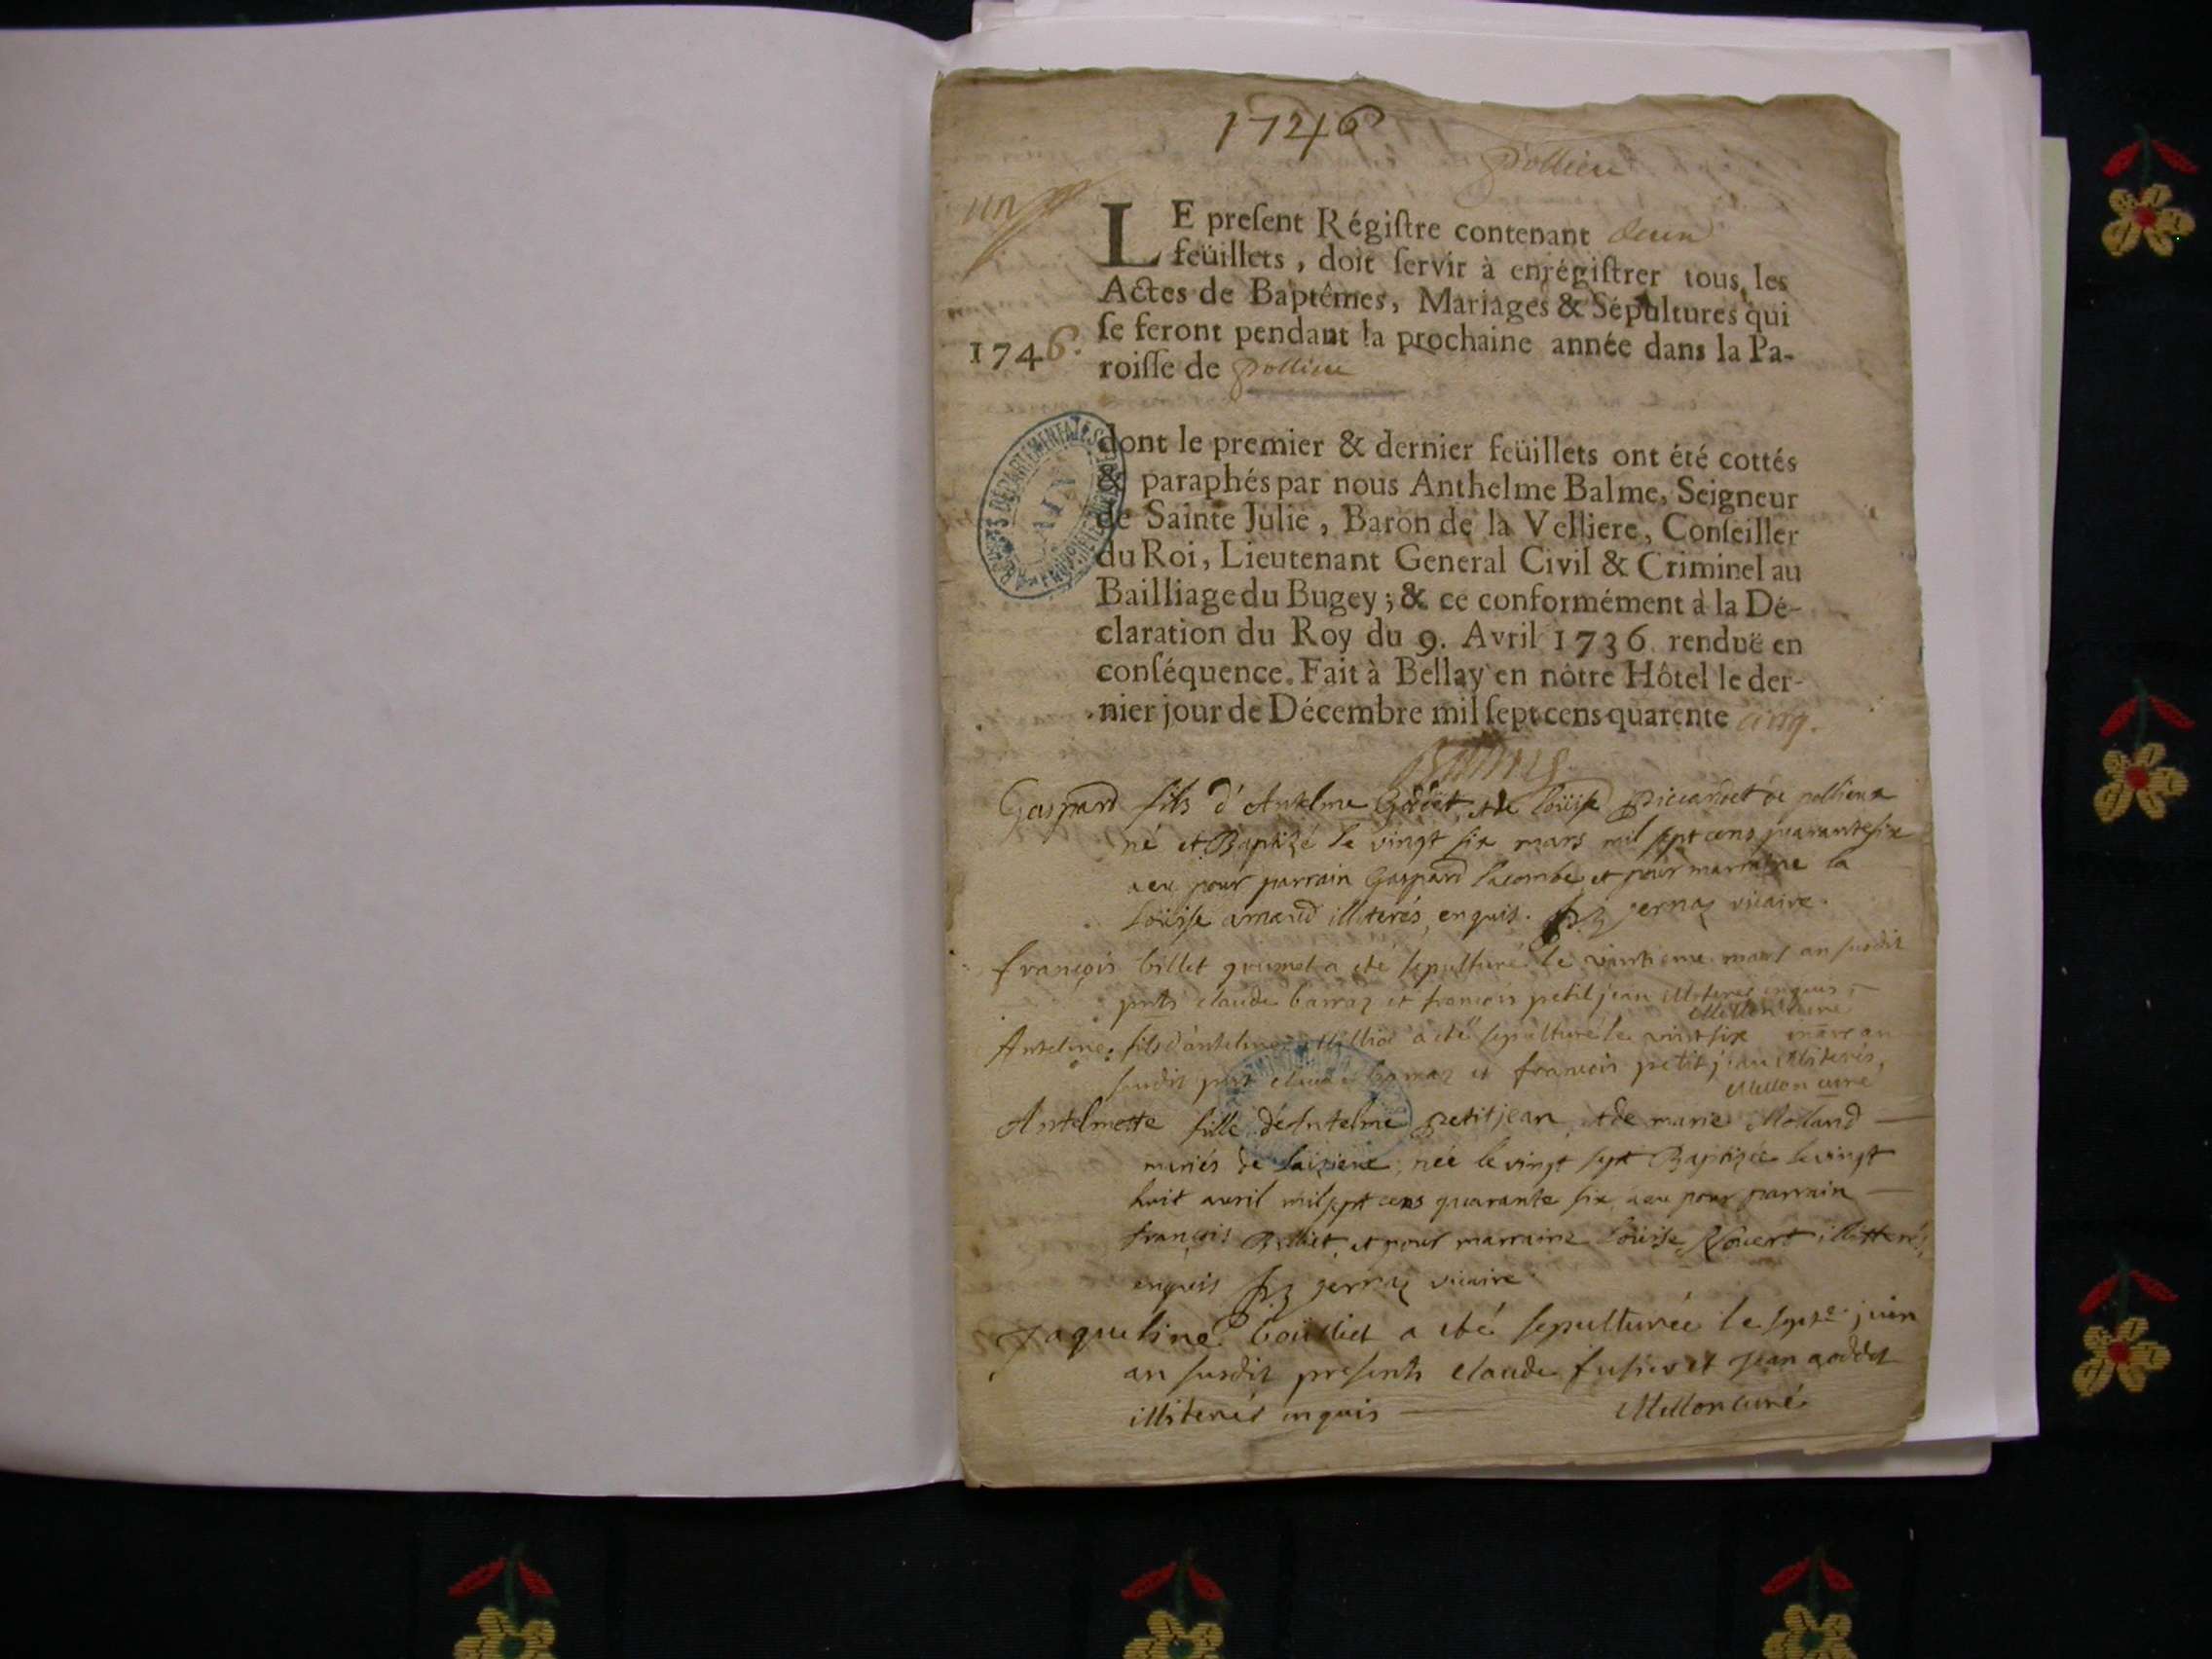 1746
pollieu
un
LE preſent Régiſtre contenant deux
feüillets, doit ſervir à enrégiſtrer tous les
Actes de Baptêmes, Mariages & Sépultures qui
ſe feront pendant la prochaine année dans la Pa-
1746.
roiſſe de pollieu
dont le premier & dernier feüillets ont été cottés
& paraphés par nous Anthelme Balme, Seigneur
de Sainte Julie, Baron de la Velliere, Conſeiller
du Roi, Lieutenant General Civil & Criminel au
Bailliage du Bugey; & ce conformément à la Dé-
claration du Roy du 9. Avril 1736. renduë en
conſéquence. Fait à Bellay en nôtre Hôtel le der-
nier jour de Décembre mil ſept cens quarente cinq.
ARCHIVES DEPARTEMENTALES
AIN
Gaspard fils d'Antelme Godet, et de Loüise de pollieux
né et Baptizé le vingt six mars mil sept cens quarante six
a eu pour parrain Gaspard lacombe et pour marraine la
Loüise amand illiterés, enquis. jernaz vicaire.
françois billet grumet a eté sepulturé le vintieme mars an susdit
pnts claude barraz et francois petit jean illiterés enquis
Mellon curé
Antelme fils d'antelme a eté sepulturé le vint six mars an
susdit pnts claude barraz et francois petit jean illiterés,
Mellon curé
Antelmette fille d'Antelme petitjean et de marie Molland
mariés de née le vingt sept Baptizée le vingt
huit avril mil sept cens quarante six a eu pour parrain
françois Billiet, et pour marraine Loüise illitterés,
enquis jernaz vicaire
Jaqueline boüillet a eté sepulturée le juin
an susdit presents claude fusier et jean goddet
illiterés enquis Mellon curé